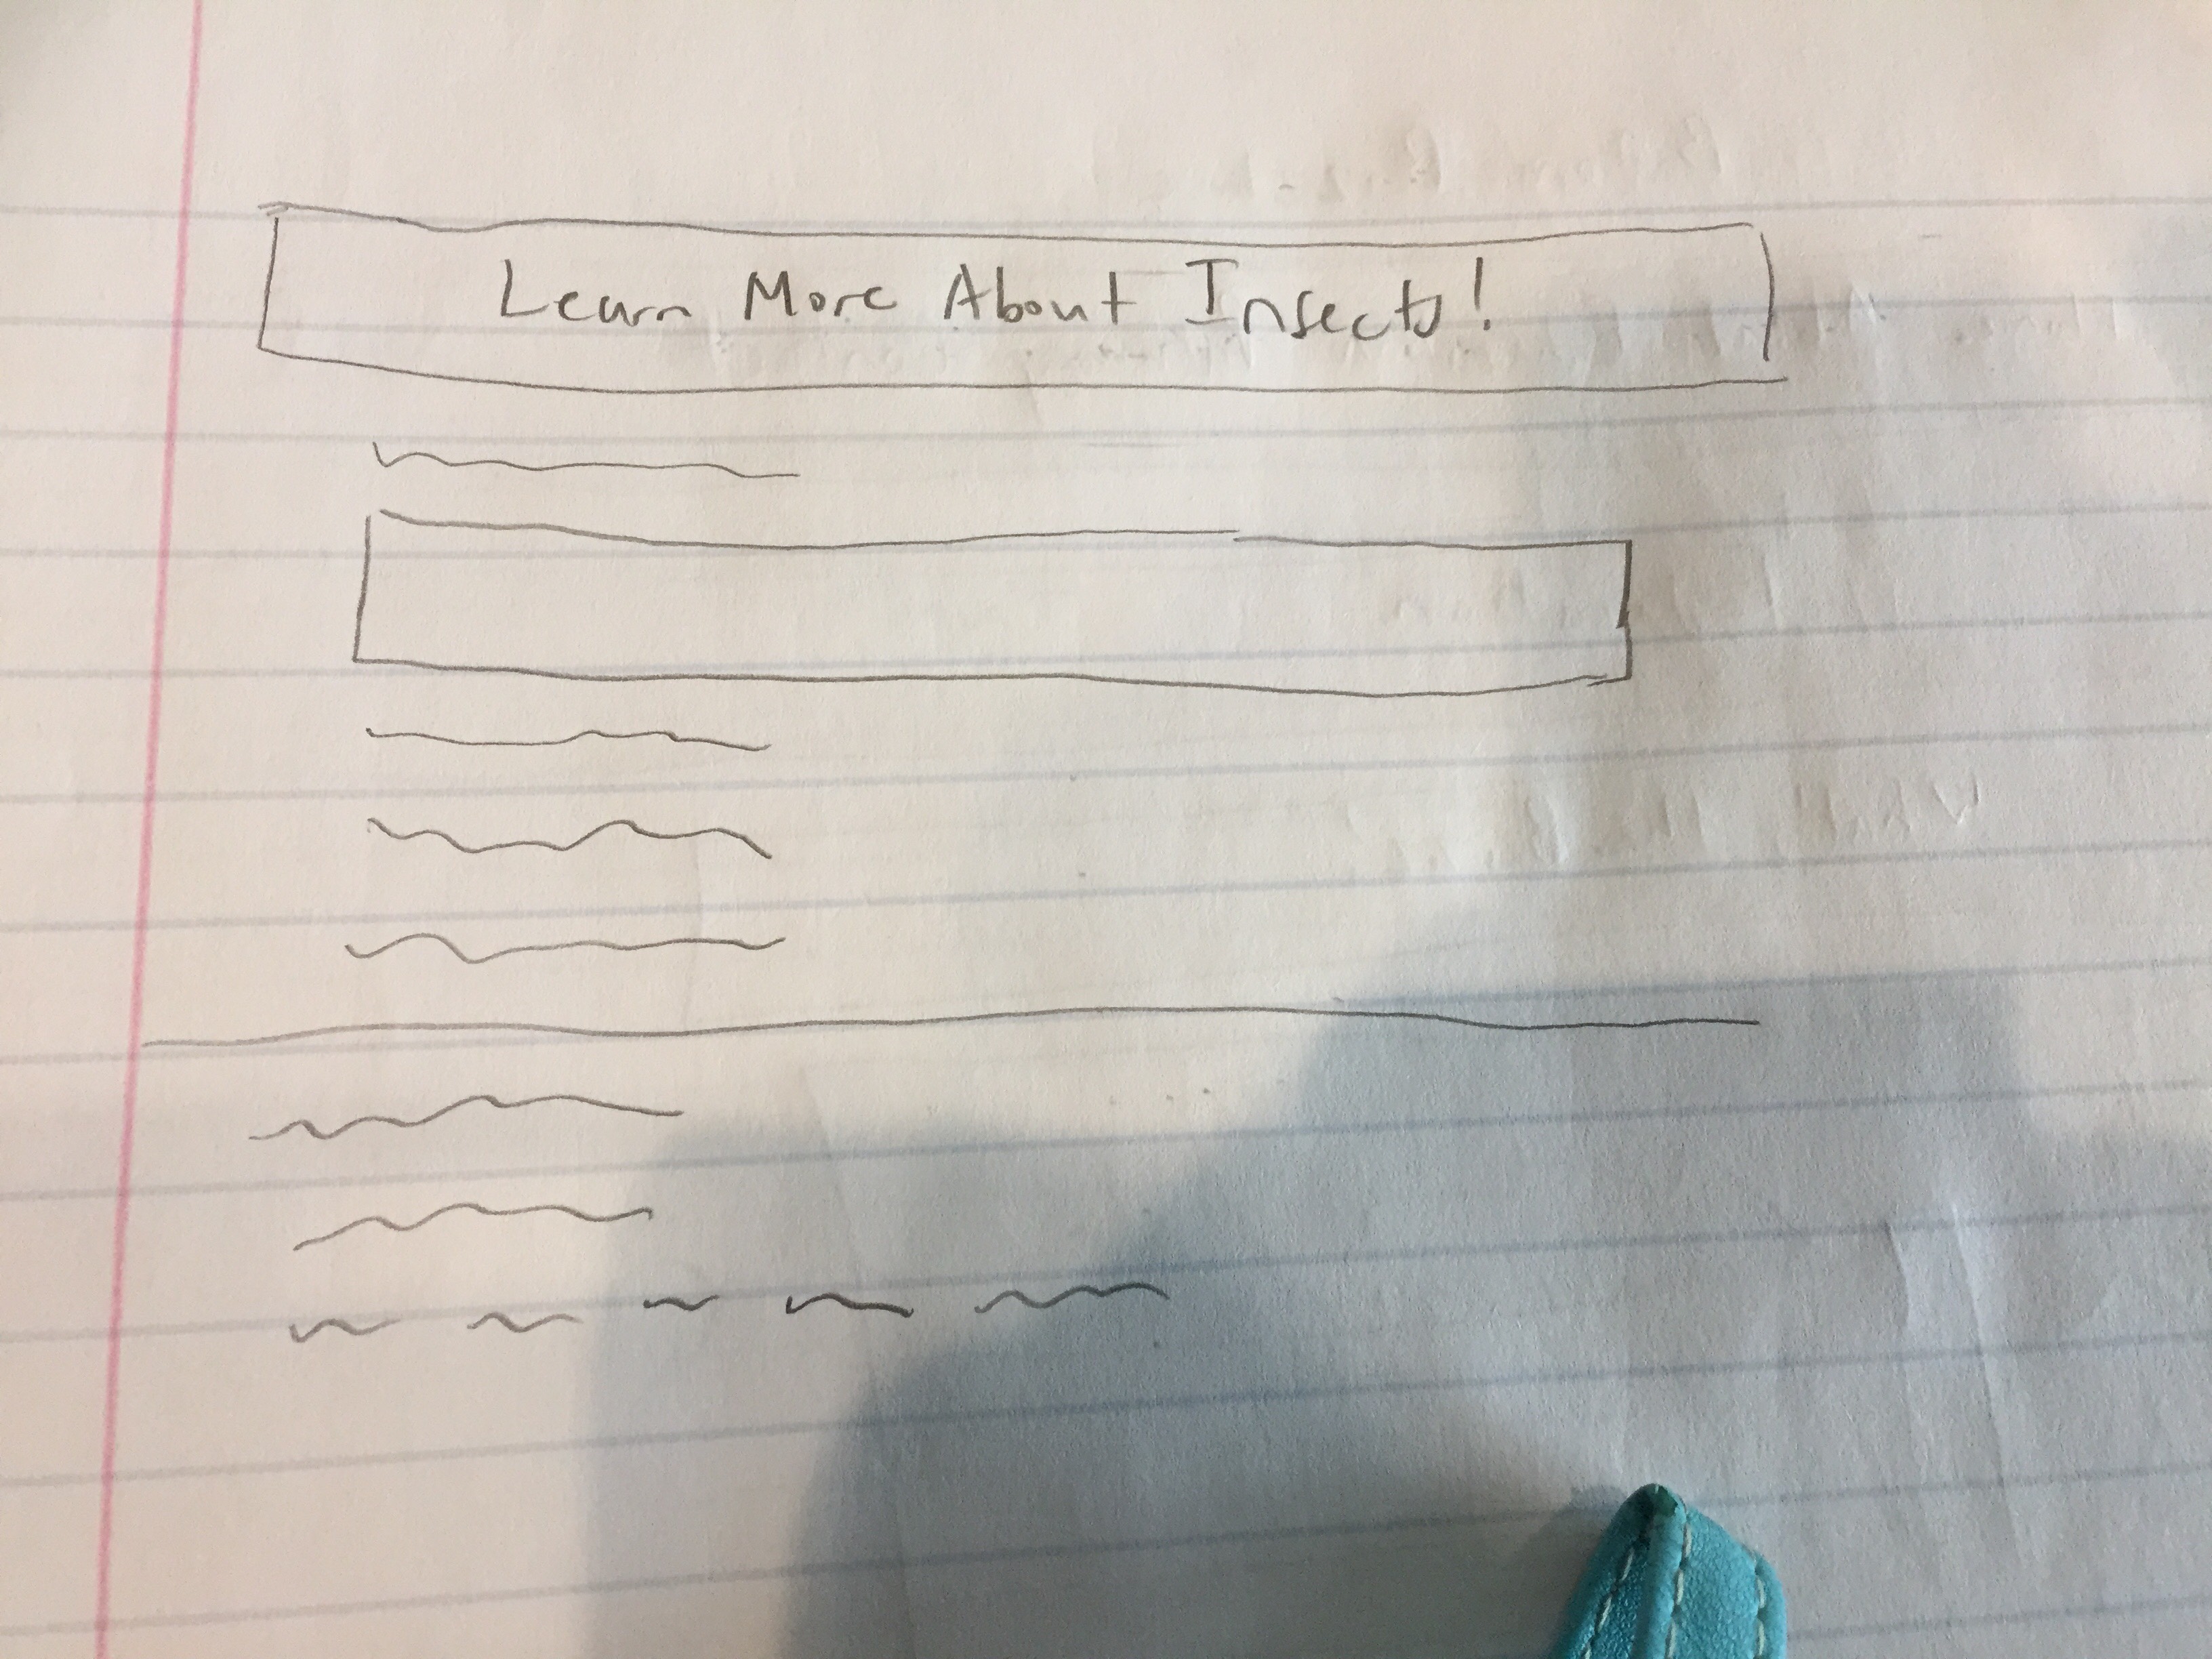 Learn More About Insects!